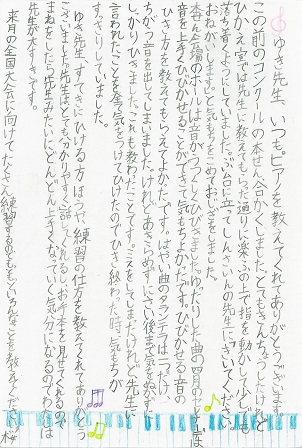 ゆき先生、いつもピアノを教えてくれてありがとうございます。
この前のコンクールの本せん、合かくしました。とてもきんちょうしたけれど
ひかえ室では先生に教えてもらった通りに楽ふの上で指を動かして少しでも
落ち着くようにしていました。ぶ台に立って「しんさいんの先生にきいてください。
おねがいします。」と気もちをこめておじぎをしました。
本せん会場のホールは音がつつつとひびきました。ゆったりした曲の四月のセレナーデは
音を上手くひびかせることができて気もちよかったです。ひびかせる音の
ひき方を教えてもらえてよかったです。はやい曲のタランテラは一つだけ
ちがう音を出してしまいました。けれどあきらめずにさい後まで気をぬかずに
しっかりひきました。これも教わったことです。ミスをしてしまったけれど先生に
言われたことを全て気をつけてひけたのでひき終わった時、気もちが
すっきりしていました。
ゆき先生、すてきにひける方ほうや、練習の仕方を教えてくれてありがとう
ございました。先生は、とても分かりやすく話してくれるし、お手本を見せてくれるので
まねをしたら先生みたいに、どんどん上手くなっていく気分になるのでわたしは
先生が大すきです。
来月の全国大会に向けてたくさん練習するのでもっといろんなことを教えてください